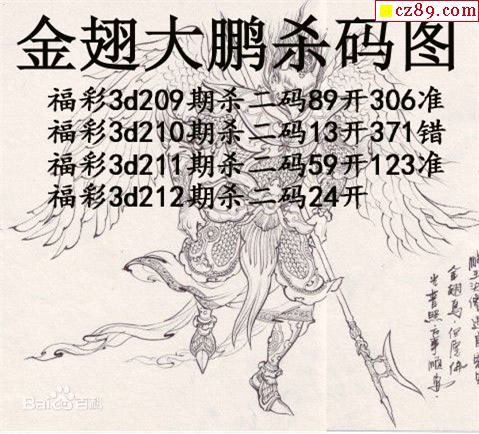 cz89.com
金翅大鹏杀码图
福彩3d209期杀二码89开306准
福彩3d210期杀二码13开371错
福彩3d211期杀二码59开123准
福彩3d212期杀二码24开
Bai百科